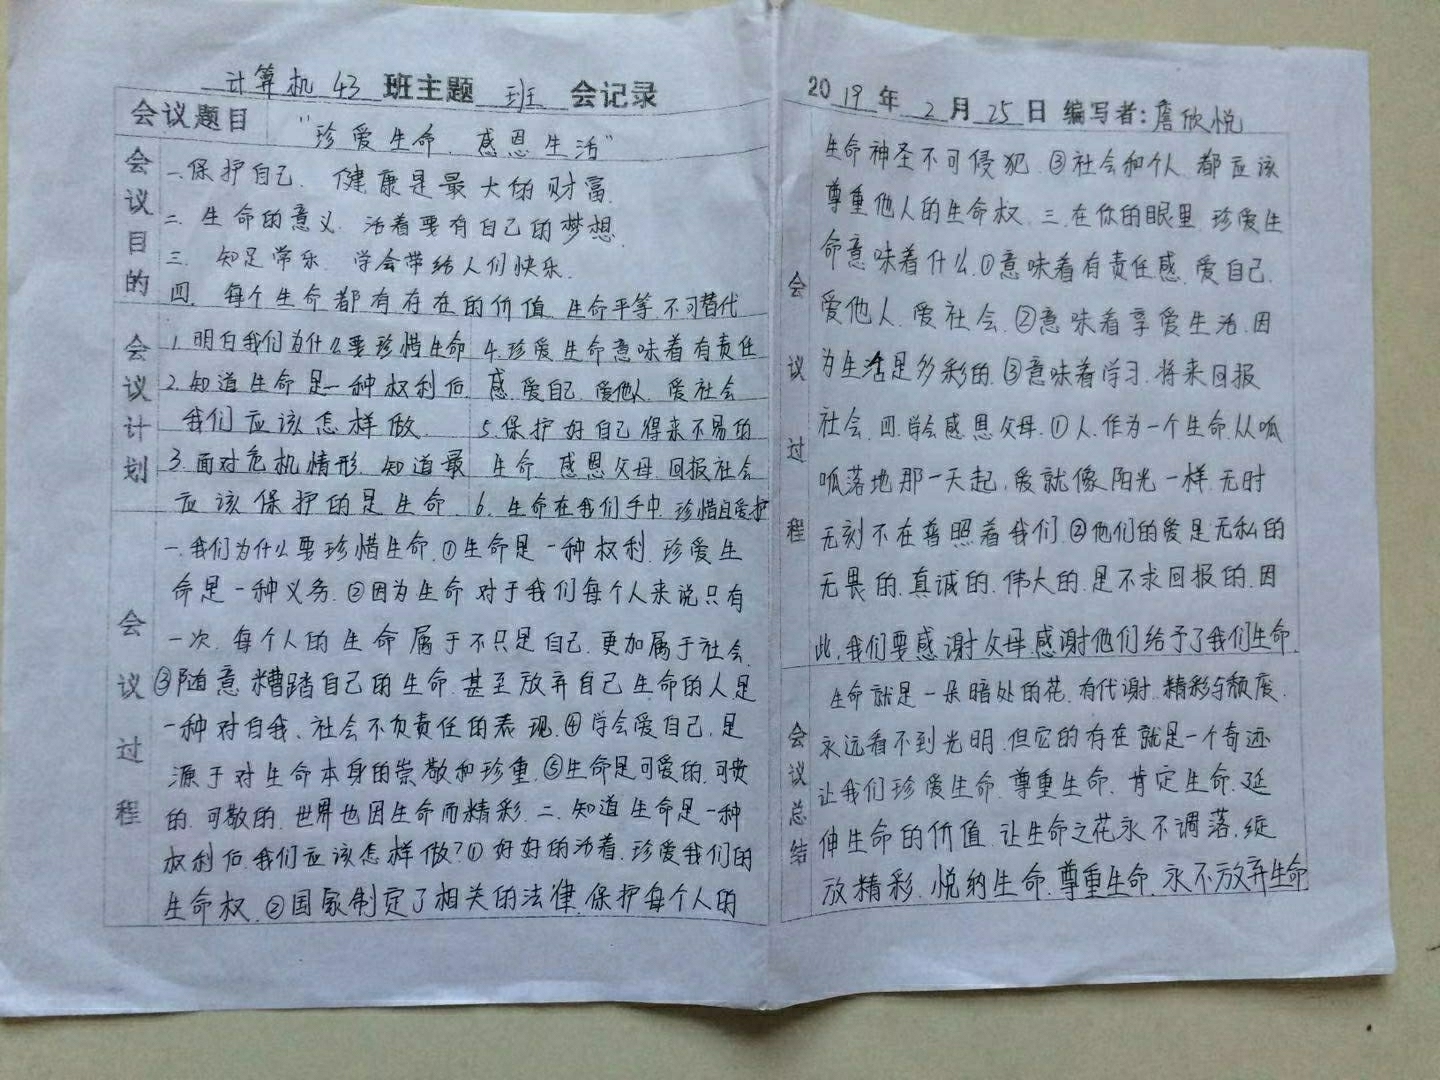 计算机 43 班主题 班 会记录
会议题目 "珍爱生命、感恩生活"
会议目的
一.保护自己、健康是最大的财富.
二.生命的意义、活着要有自己的梦想.
三.知足常乐、学会带给人们快乐.
四.每个生命都有存在的价值.生命平等.不可替代
会议计划
1.明白我们为什么要珍惜生命
2.知道生命是一种权利后.
我们应该怎样做.
3.面对危机情形.知道最
应该保护的是生命.
4.珍爱生命意味着有责任
感.爱自己.爱他人.爱社会
5.保护好自己得来不易的
生命.感恩父母.回报社会
6.生命在我们手中.珍惜且爱护
会议过程
一.我们为什么要珍惜生命.①生命是一种权利.珍爱生
命是一种义务.②因为生命对于我们每个人来说只有
一次.每个人的生命属于不只是自己.更加属于社会.
③随意糟踏自己的生命.甚至放弃自己生命的人.是
一种对自我、社会不负责任的表现.④学会爱自己.是
源于对生命本身的崇敬和珍重.⑤生命是可爱的.可贵
的.可敬的.世界也因生命而精彩.二.知道生命是一种
权利后.我们应该怎样做?①好好的活着.珍爱我们的
生命权.②国家制定了相关的法律.保护每个人的
20 19 年 2 月 25 日 编写者:詹欣悦
会议过程
生命神圣不可侵犯.③社会和个人都应该
尊重他人的生命权.三.在你的眼里.珍爱生
命意味着什么.①意味着有责任感.爱自己.
爱他人.爱社会.②意味着享爱生活.因
为生活是多彩的.③意味着学习.将来回报
社会.四.学会感恩父母.①人.作为一个生命.从呱
呱落地那一天起.爱就像阳光一样.无时
无刻不在普照着我们.②他们的爱是无私的
无畏的.真诚的.伟大的.是不求回报的.因
此.我们要感谢父母.感谢他们给予了我们生命.
会议总结
生命就是一朵暗处的花.有代谢.精彩与颓废.
永远看不到光明.但它的存在就是一个奇迹
让我们珍爱生命.尊重生命.肯定生命.延
伸生命的价值.让生命之花永不调落.绽
放精彩.悦纳生命.尊重生命.永不放弃生命